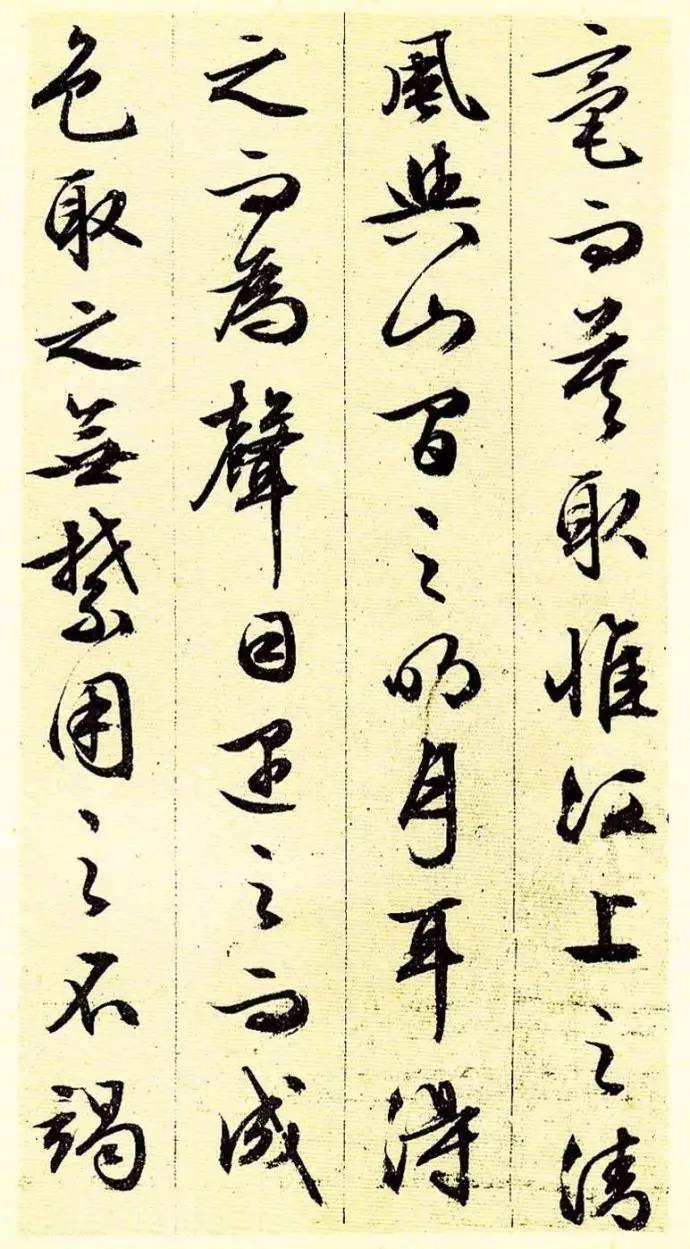 毫而莫取惟江上之清
風與山間之明月耳得
之而為聲目遇之而成
色取之無禁用之不竭